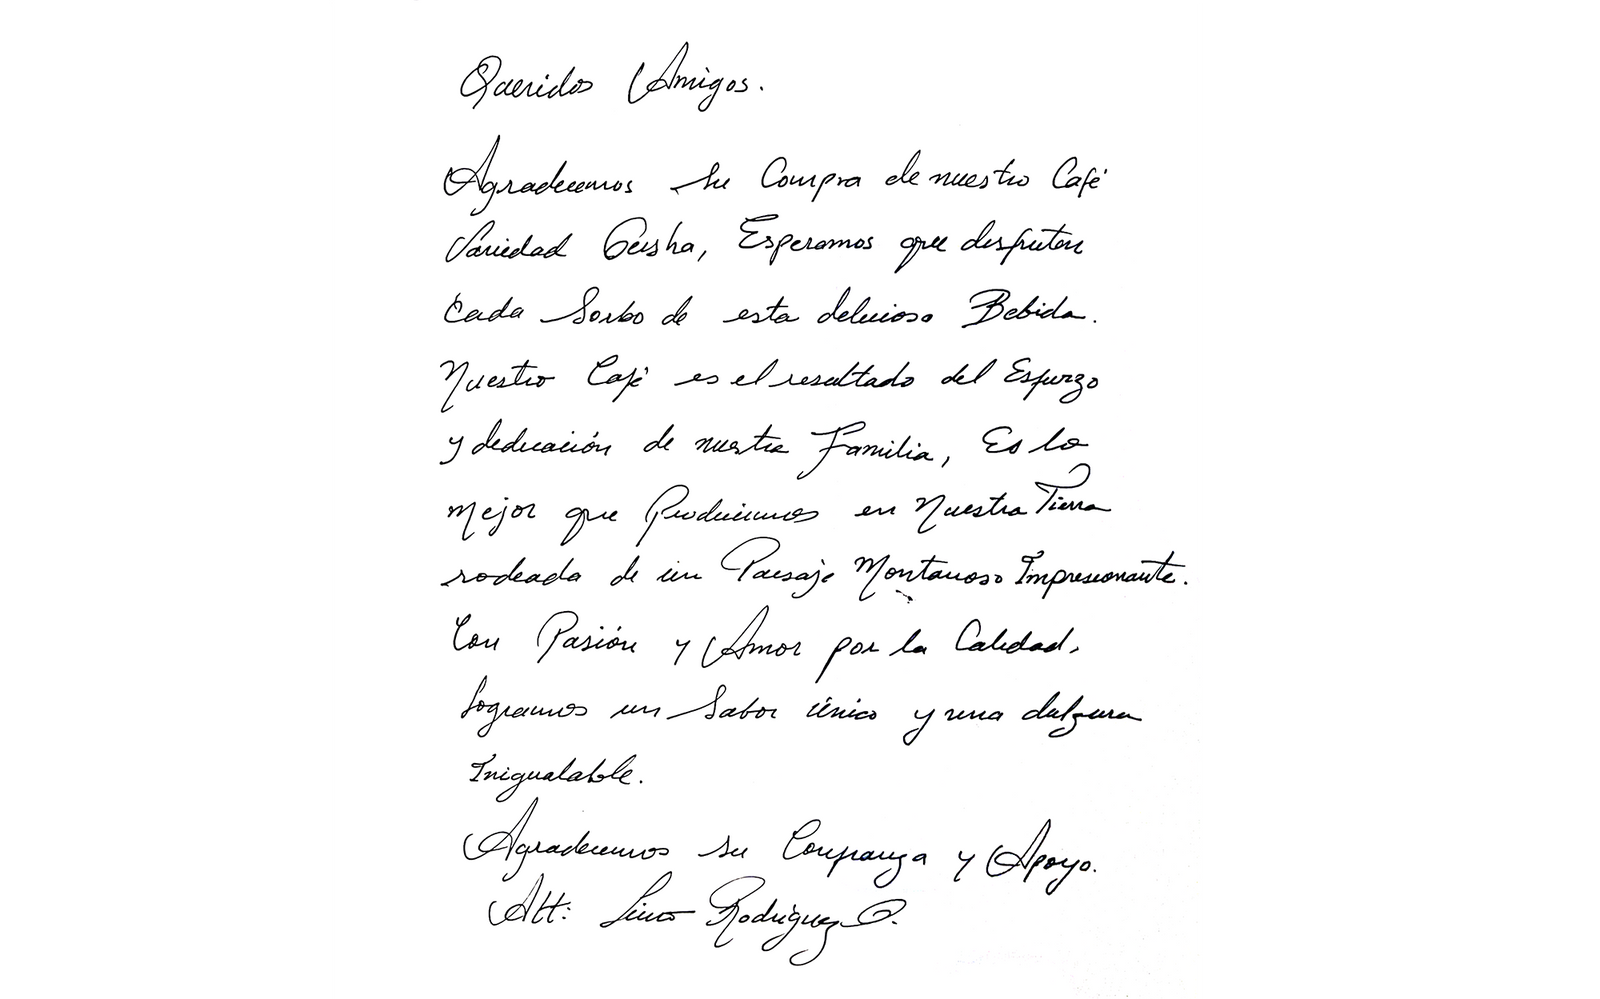 Queridos Amigos.
Agradecemos su Compra de nuestro Café
Variedad Geisha, Esperamos que disfruten
cada Sorbo de esta deliciosa Bebida.
Nuestro Café es el resultado del Esfuerzo
y dedicación de nuestra Familia, Es lo
mejor que Producimos en Nuestra Tierra
rodeada de un Paisaje Montañoso Impresionante.
Con Pasión y Amor por la Calidad,
logramos un Sabor único y una dulzura
Inigualable.
Agradecemos su Confianza y Apoyo.
Att: Lino Rodriguez O.